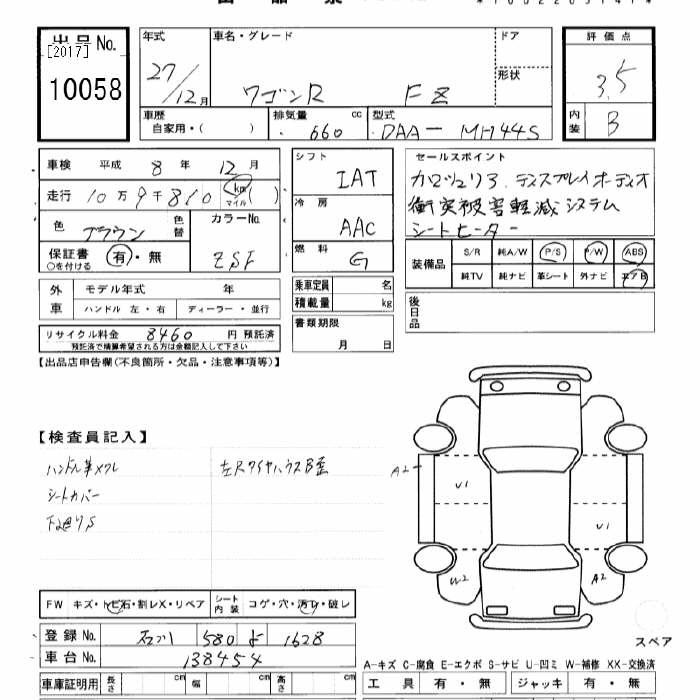 出品票
出品No.
[2017]
10058
年式
27/12月
車名・グレード
ワゴンR FZ
ドア
形状
評価点
3.5
内装
B
車歴
自家用・( )
排気量 cc
660
型式
DAA-MH44S
車検 平成 8 年 12 月
走行 10万9千810 km マイル ( )
色 ブラウン 色替
カラーNo.
ZSF
保証書 有・無
○を付ける
シフト
IAT
冷房
AAC
燃料
G
セールスポイント
ディスプレイオーディオ
衝突被害軽減システム
シートヒーター
装備品 S/R 純A/W P/S P/W ABS
純TV 純ナビ 革シート 外ナビ エアB
外車 モデル年式 年
ハンドル 左・右 ディーラー・並行
乗車定員 名
積載量 kg
後日品
リサイクル料金 8460 円 預託済
預託済で精算希望される方は金額記入して下さい
書類期限
月 日
【出品店申告欄(不良箇所・欠品・注意事項等)】
【検査員記入】
ハンドル革メクレ
シートカバー
下廻りS
左Rタイヤハウス B歪
A2
U1
U1
W2
A2
FW キズ・トビ石・割レX・リペア
シート内装 コゲ・穴・汚レ・破レ
登録No. 石川 580 よ 1628
車台No. 138454
スペア
A-キズ C-腐食 E-エクボ S-サビ U-凹ミ W-補修 XX-交換済
車庫証明用 長さ cm 幅 cm 高さ cm
工具 有・無 ジャッキ 有・無